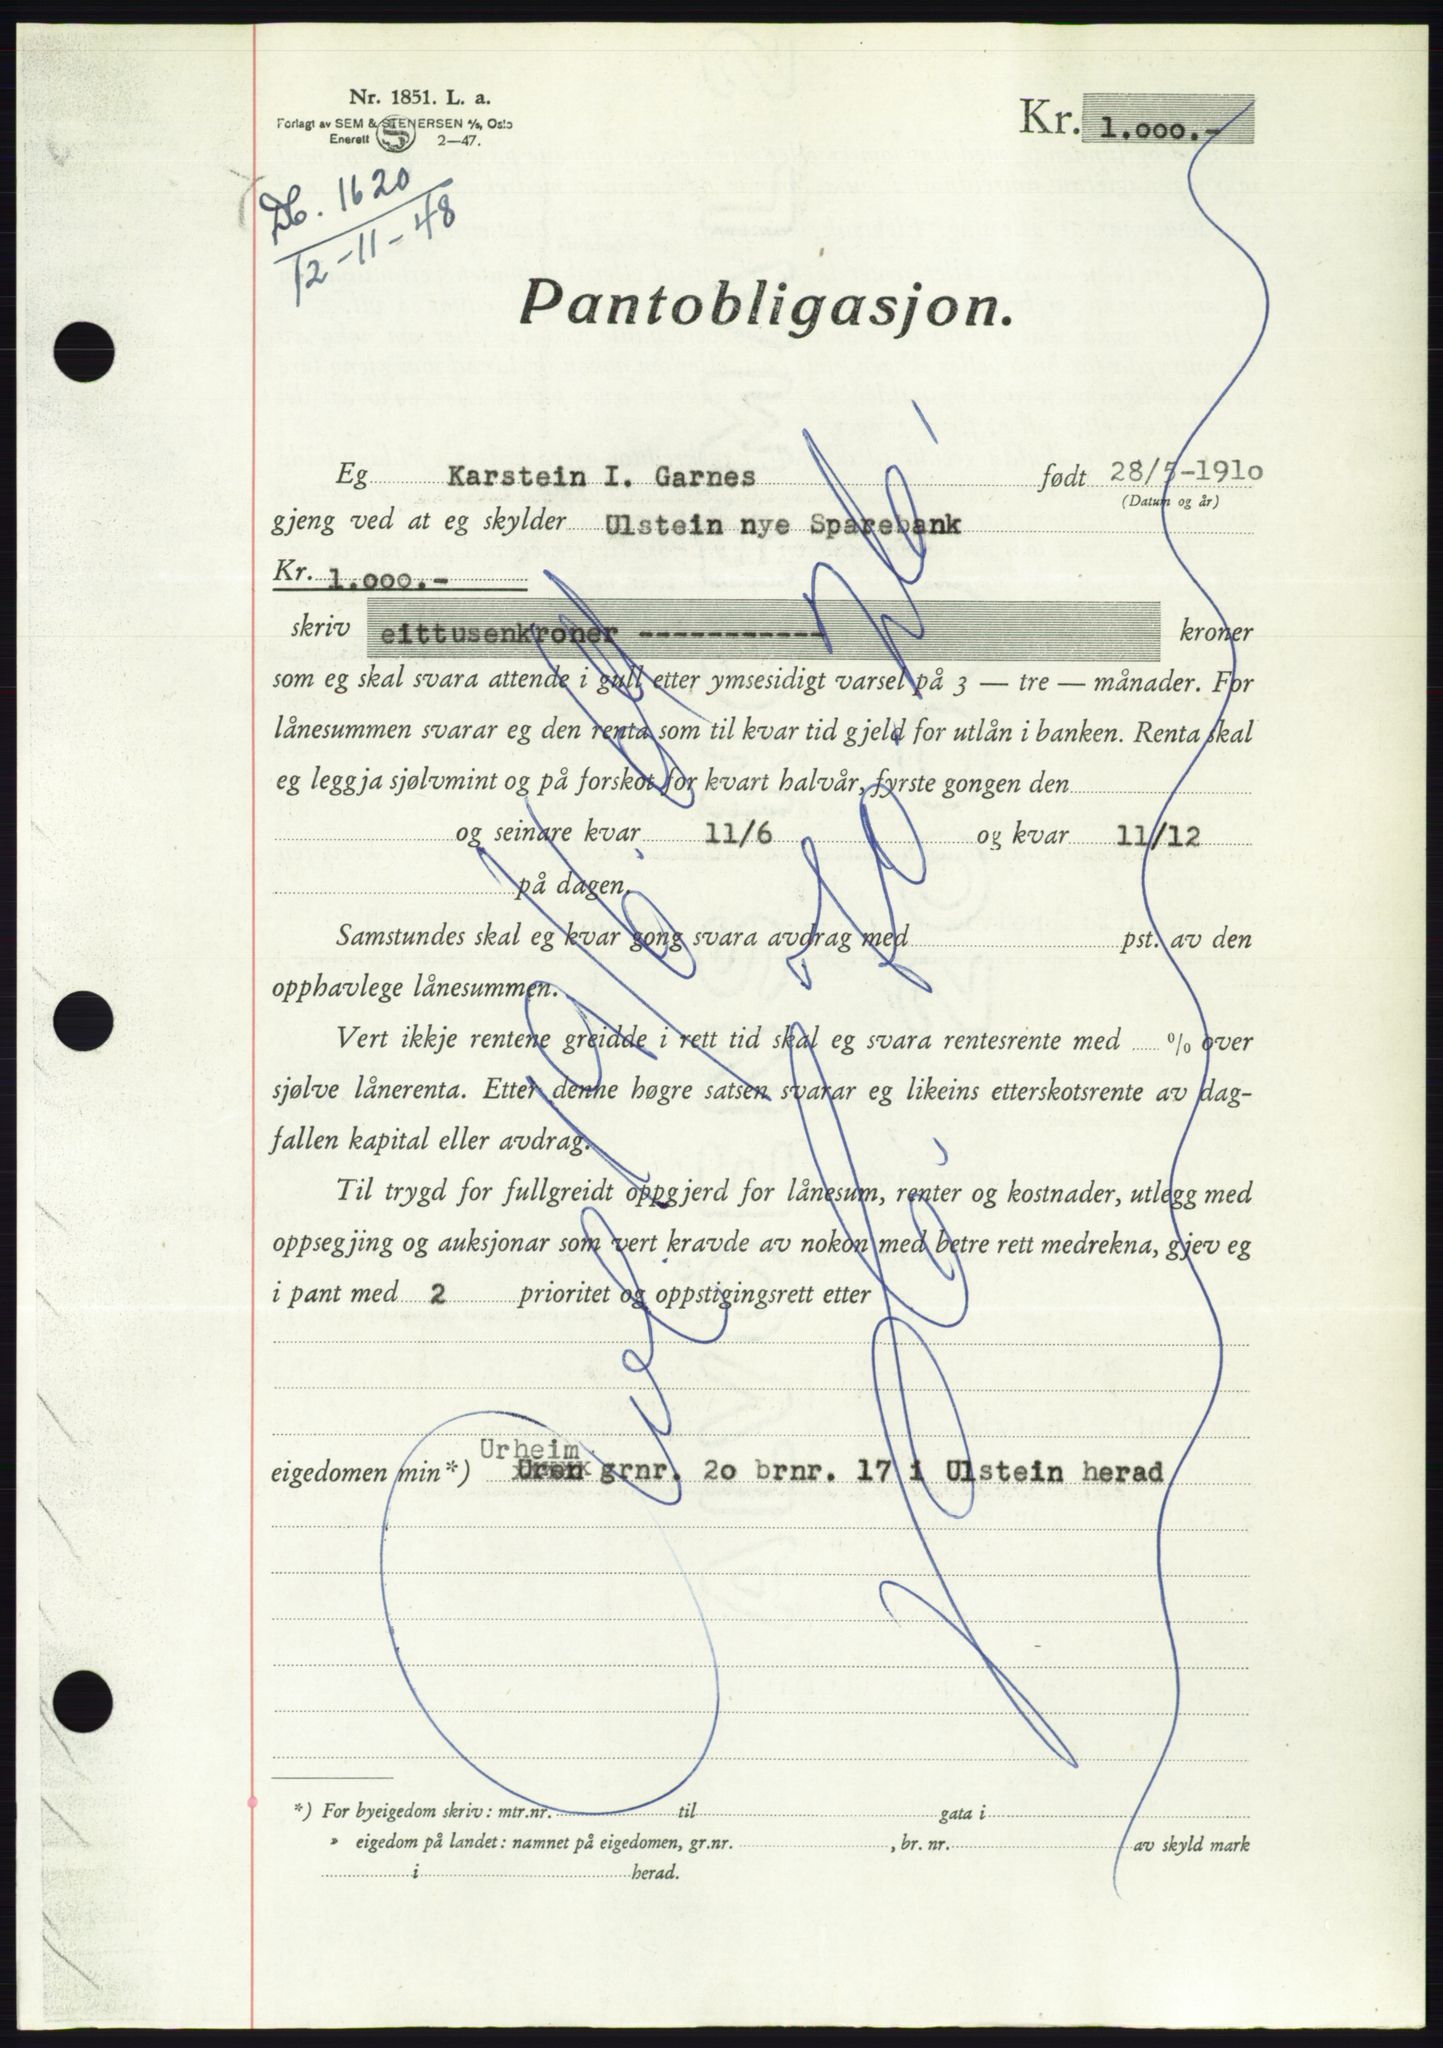 Nr. 1851. L. a.
Forlagt av SEM & STENERSEN A/S, Oslo
Enerett 2—47.
Kr. 1.000.-
Db. 1620
12-11-48
Pantobligasjon.
Eg Karstein I. Garnes født 28/5-1910
(Datum og år)
gjeng ved at eg skylder Ulstein nye Sparebank
Kr. 1.000.-
skriv eittusenkroner ----------- kroner
som eg skal svara attende i gull etter ymsesidigt varsel på 3 — tre — månader. For
lånesummen svarar eg den renta som til kvar tid gjeld for utlån i banken. Renta skal
eg leggja sjølvmint og på forskot for kvart halvår, fyrste gongen den
og seinare kvar 11/6 og kvar 11/12
på dagen.
Samstundes skal eg kvar gong svara avdrag med pst. av den
opphavlege lånesummen.
Vert ikkje rentene greidde i rett tid skal eg svara rentesrente med % over
sjølve lånerenta. Etter denne høgre satsen svarar eg likeins etterskotsrente av dag-
fallen kapital eller avdrag.
Til trygd for fullgreidt oppgjerd for lånesum, renter og kostnader, utlegg med
oppsegjing og auksjonar som vert kravde av nokon med betre rett medrekna, gjev eg
i pant med 2 prioritet og oppstigingsrett etter
Urheim
eigedomen min*) Uren grnr. 20 brnr. 17 i Ulstein herad
*) For byeigedom skriv: mtr.nr. til gata i
» eigedom på landet: namnet på eigedomen, gr.nr. , br. nr. av skyld mark
i herad.